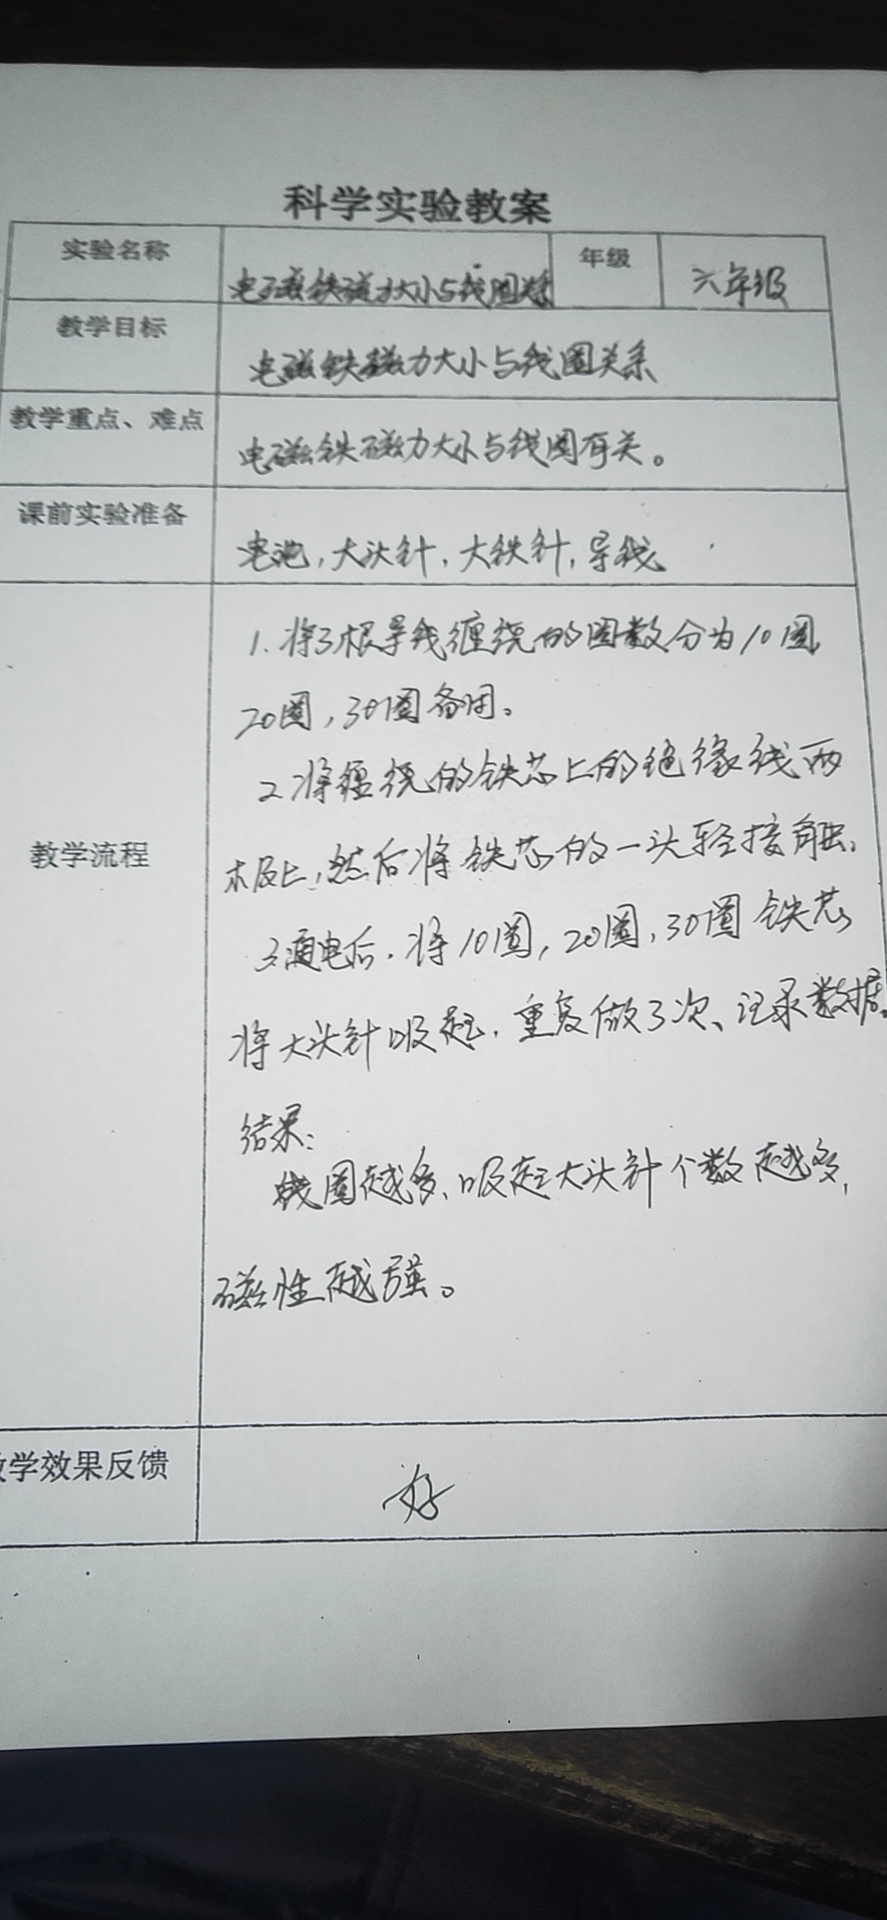 科学实验教案
实验名称 电磁铁磁力大小与线圈关系 年级 六年级
教学目标 电磁铁磁力大小与线圈关系
教学重点、难点 电磁铁磁力大小与线圈有关。
课前实验准备 电池,大头针,大铁针,导线
教学流程
1.将3根导线缠绕的圈数分为10圈
20圈,30圈备用。
2.将缠绕的铁芯上的绝缘线两
极上,然后将铁芯的一头轻接触、
3.通电后.将10圈,20圈,30圈铁芯
将大头针吸起.重复做3次、记录数据。
结果:
线圈越多、吸起大头针个数越多,
磁性越强。
学效果反馈 好